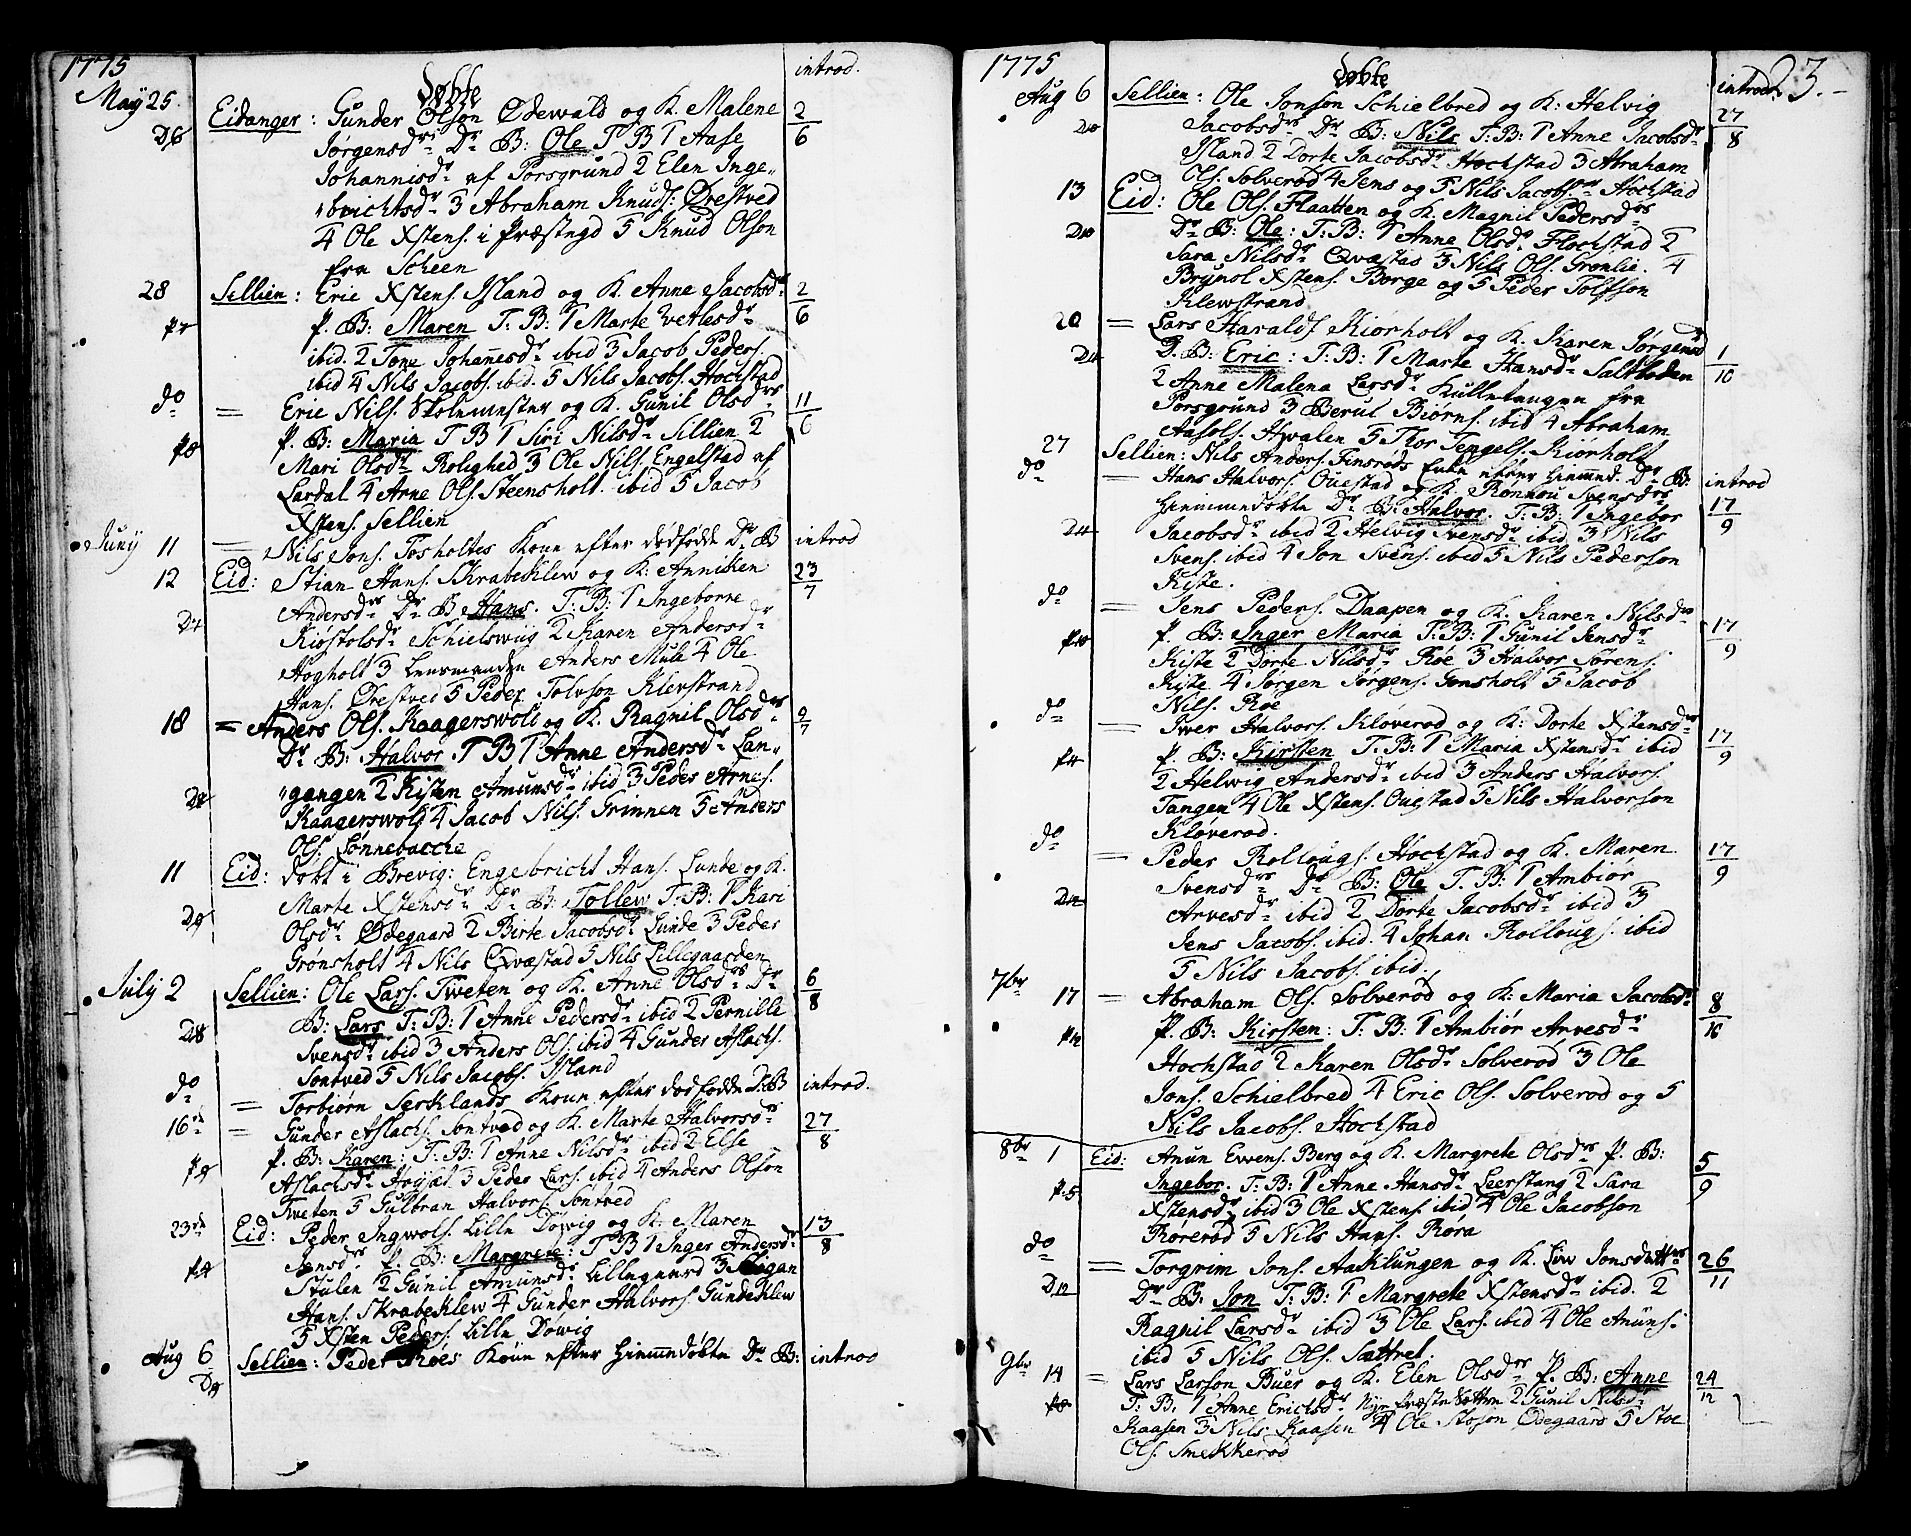 1775
Døbte
introd.
May 25. Eidanger: Gunder Olsøn Ødewald og K. Malene 2/6
D6 Jørgensdr. Dr. B: Ole T B 1 Aase
Johannisdr. af Porsgrund 2 Elen Inge„
„brichtsdr. 3 Abraham Knuds: Ørestved
4 Ole Xstens. i Præstegd 5 Knud Olsøn
fra Scheen
28 Sellien: Eric Xstens. Island og K. Anne Jacobsdr. 2/6
P. B: Maren T: B: 1 Marte Vetlesdr.
ibid. 2 Tone Johannesdr. ibid 3 Jacob Peders.
ibid 4 Nils Jacobs. ibid. 5 Nils Jacobs. Hochstad
do = Eric Nils. Skolemester og K. Gunil Olsdr. 11/6
P8 P. B: Maria T B 1 Siri Nilsdr. Sillien 2
Mari Olsdr. Rolighed 3 Ole Nils. Engelstad af
Lardal 4 Arne Ols. Steensholt ibid 5 Jacob
Xstens. Sellien
Juny 11 = Nils Jons. Tosholtes Kone efter dødfødde Dr. B introd
12 Eid: Stian Hans. Skrabeklew og K: Anniken 23/7
Andersdr. Dr. B Hans. T: B: 1 Ingeborre
Kiøstolsdr. Schielswiig 2 Karen Andersdr.
Hogholt 3 Lensmanden Anders Mule 4 Ole
Hans. Ørestved 5 Peder Tolvson Klevstrand
18 = Anders Ols. Kaagerswold og K. Ragnil Olsdr. 9/7
Dr. B: Halvor T B 1 Anne Andersdr. Lan„
„gangen 2 Kisten Amunsdr. ibid 3 Peder Arnes.
D8 Kaagerswold 4 Jacob Nils. Grinnen 5 Anders
Ols. Lønnebacche
11 Eid: døbt i Brevig: Engebricht Hans. Lunde og K.
Marte Xstensdr. Dr. B: Tollew T: B: 1 Kari
D9 Olsdr. Ødegaard 2 Birte Jacobsdr. Lunde 3 Peder
Grønsholt 4 Nils Qvæstad 5 Nils Lillegaarden
July 2 Sellien: Ole Lars. Tweten og K. Anne Olsdr. Dr. 6/8
B: Lars T: B: 1 Anne Pedersdr. ibid 2 Pernille
D8 Svensdr. ibid 3 Anders Ols. ibid 4 Gunder Aslachs.
Sontved 5 Nils Jacobs. Island
do = Torbiørn Serklands Kone efter dødfødde D: B introd.
16 = Gunder Aslachs. Sontved og K. Marte Halvorsdr. 27/8
P. B: Karen: T: B: 1 Anne Nilsdr. ibid 2 Else
P9 Aslachsdr. Høysæt 3 Peder Lars. ibid 4 Anders Olsøn
Tweten 5 Gulbran Halvors. Sontved
23 Eid: Peder Ingwols. Lille Dowig og K. Maren 13/8
Jensdr. P. B: Margrete: T B 1 Inger Andersdr.
Stulen 2 Gunil Amunsdr. Lillegaard 3
Hans. Skrabeklew 4 Gunder Halvors. Gundeklew
5 Xsten Peders. Lille Dowig
Aug 6 Sellien: Peder Roes Kone efter hiemmdøbte Dr. B: introd
1775
Døbte
introd. 23.
Aug 6 Sellien: Ole Jonsøn Schielbred og K: Helvig 27/8
Jacobsdr. Dr. B: Nils T: B: 1 Anne Jacobsdr.
Island 2 Dorte Jacobsdr. Hochstad 3 Abraham
Ols. Solverød 4 Jens og 5 Nils Jacobs. Hochstad
13 Eid: Ole Ols. Flaatten og K. Magnil Pedersdr.
D10 Dr. B: Ole: T: B: 1 Anne Olsdr. Flochstad 2
Sara Nilsdr. Qvæstad 3 Nils Ols. Grønlie. 4
Brynol Xstens. Borge og 5 Peder Tolfson
Klewstrand
20 = Lars Haralds. Kiørholt og K. Karen Jørgensd 1/10
D. B: Eric: T: B: 1 Marte Hansdr. Saltboden
2 Anne Malena Larsdr. Kulletangen fra
Porsgrund 3 Berul Biørns. ibid 4 Abraham
Aasols. Hwalen 5 Thor Tengels. Kiørholt
27 Sellien: Nils Anders. Finsrøds Enke efter hiemmd. Dr. B: introd
do = Hans Halvors. Ouestad og K. Ronnou Svensdr. 17/9
hiemmedøbte Dr. B: Halvor. T: B: 1 Ingebor
Jacobsdr. ibid 2 Helvig Svensdr. ibid. 3 Nils
Svens. ibid 4 Jon Svens. ibid 5 Nils Pederson
Kiste.
do = Jens Peders. Daapen og K. Karen Nilsdr. 17/9
P. B: Inger Maria T: B: 1 Gunil Jensdr.
Kiste 2 Dorte Nilsdr. Røe 3 Halvor Sørens.
Kiste 4 Jørgen Jørgens. Gonsholt 5 Jacob
Nils. Røe
do = Iwer Halvors. Kløverød og K: Dorte Xstensdr. 17/9
P. B: Kirsten T: B: 1 Maria Xstensdr. ibid
2 Helwig Andersdr. ibid 3 Anders Halvors.
Tangen 4 Ole Xstens. Ouestad 5 Nils Halvorson
Kløverød.
do = Peder Rollougs. Hochstad og K. Maren 17/9
Svensdr. Dr. B: Ole T. B: 1 Ambiør
D12 Arvesdr. ibid 2 Dorte Jacobsdr. ibid 3
Jens Jacobs. ibid. 4 Johan Rolloug s. ibid
5 Nils Jacobs. ibid.
7br 17 = Abraham Ols. Solverød og K: Maria Jacobsdr. 8/10
P. B: Kirsten: T: B: 1 Ambiør Arvesdr.
Hochstad 2 Karen Olsdr. Solverød 3 Ole
Jons. Schielbred 4 Eric Ols. Solverød og 5
Nils Jacobs. Hochstad
8br 1 Eid: Anun Evens. Berg og K. Margrete Olsdr. P. B: 5/9
P.5 Ingebor. T: B: 1 Anne Hansdr. Leerstang 2 Sara
Xstensdr. ibid 3 Ole Xstens. ibid 4 Ole Jacobson
Rørerød 5 Nils Hans. Røra
do = Torgrim Jons. Aaklungen og K. Liw Jonsdatr. 26/11
Dr. B: Jon T: B: 1 Margrete Xstensdr. ibid. 2
Ragnil Larsdr. ibid 3 Ole Lars. ibid 4 Ole Anuns.
ibid 5 Nils Ols. Sættret.
9br 14 = Lars Larson Buer og K. Elen Olsdr. P. B: Anne 24/12
T: B: 1 Anne Erichsdr. 2 Gunil Nilsdr.
Kaasen 3 Nils Kaasen 4 Ole Ødegaard 5
Ols. Smekkerød